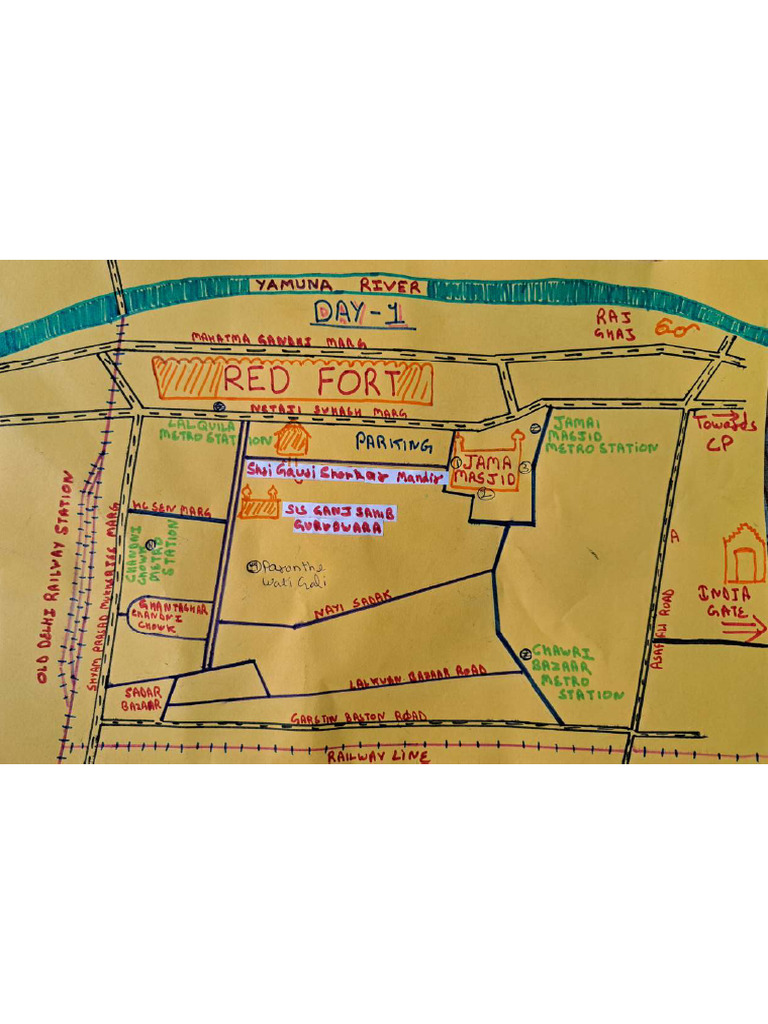 YAMUNA RIVER
DAY-1
RAJ
GHAT
MAHATMA GANDHI MARG
RED FORT
NETAJI SUBHASH MARG
LAL QUILA
METRO STATION
PARKING
JAMAI
MASJID
METRO STATION
Towards
CP
JAMA
MASJID
Shri Gauri Shankar Mandir
SIS GANJ SAHIB
GURUDWARA
HC SEN MARG
CHANDNI
CHOWK
METRO
STATION
OLD DELHI RAILWAY STATION
SHYAM PRASAD MUKHERJEE MARG
Paranthe
Wali Gali
A
INDIA
GATE
ASAF ALI ROAD
GHANTAGHAR
CHANDNI
CHOWK
NAYI SADAK
CHAWRI
BAZAAR
METRO
STATION
LALKUAN BAZAAR ROAD
SADAR
BAZAAR
GARSTIN BASTON ROAD
RAILWAY LINE